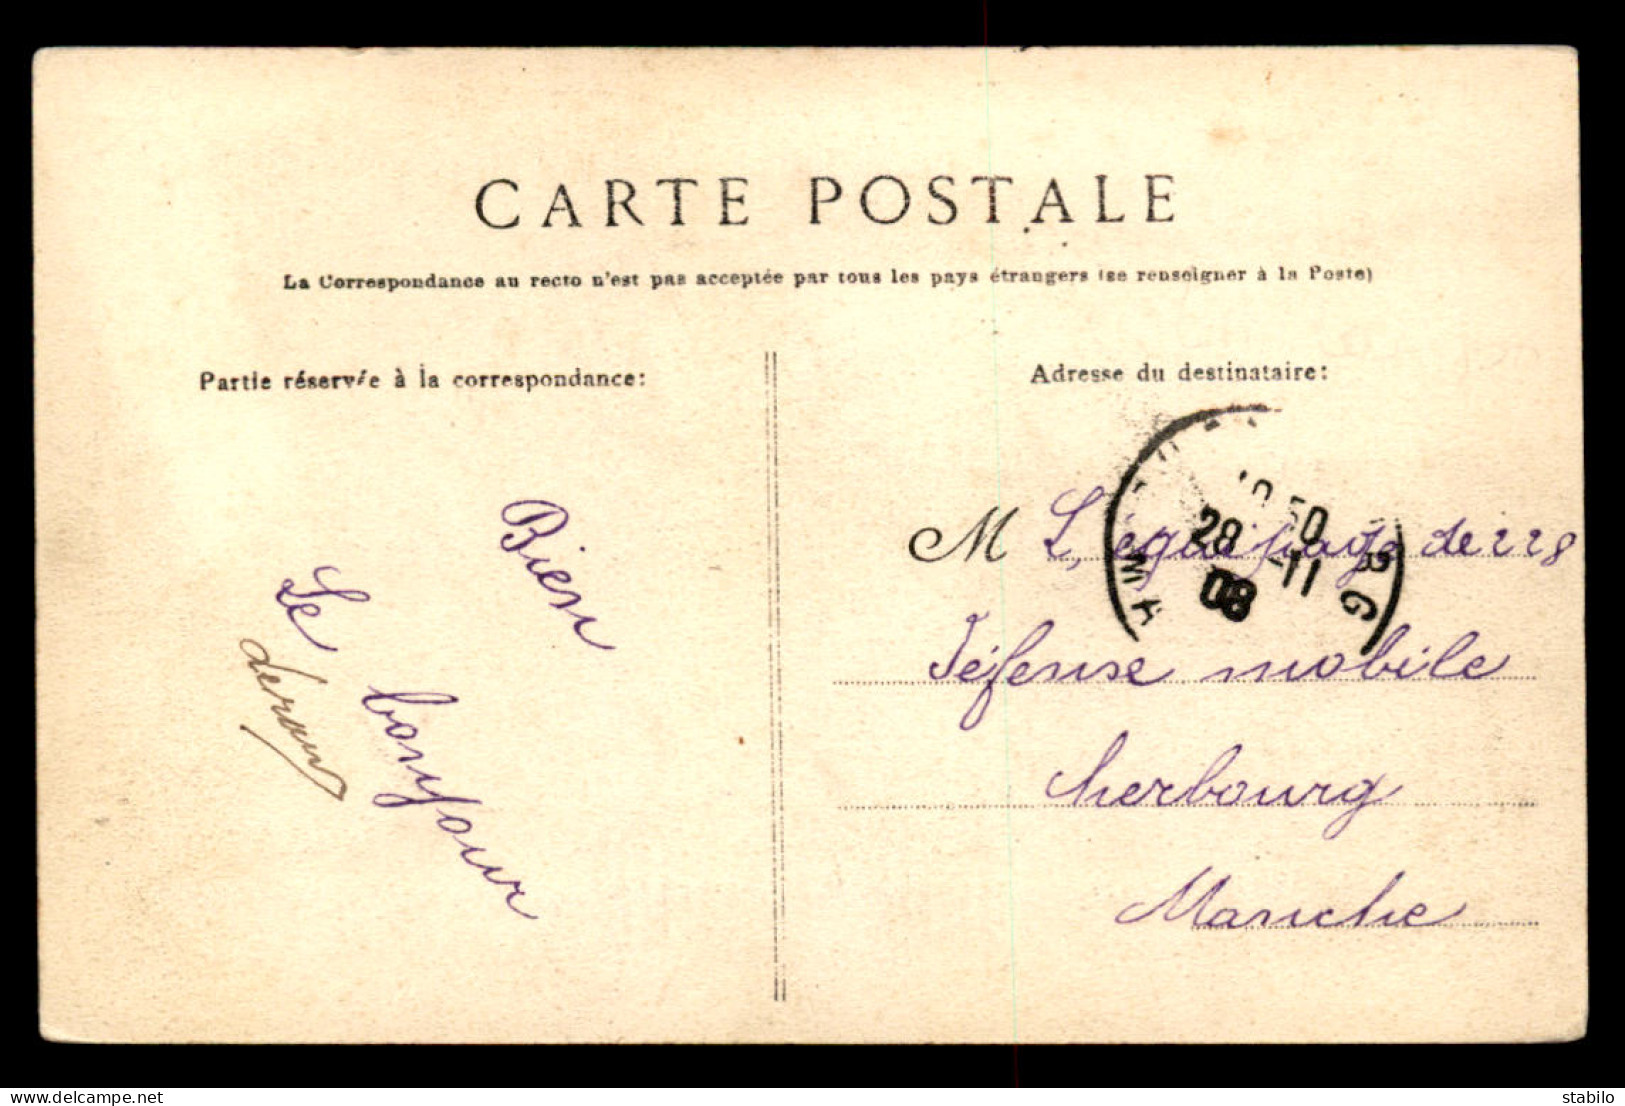 CARTE POSTALE
La Correspondance au recto n'est pas acceptée par tous les pays étrangers (se renseigner à la Poste)
Partie réservée à la correspondance:
Bien
Le
bonjour
Adresse du destinataire:
M L'équipage de 228
Défense mobile
Cherbourg
Manche
50
28 -11
08
delcampe.net
stabilo